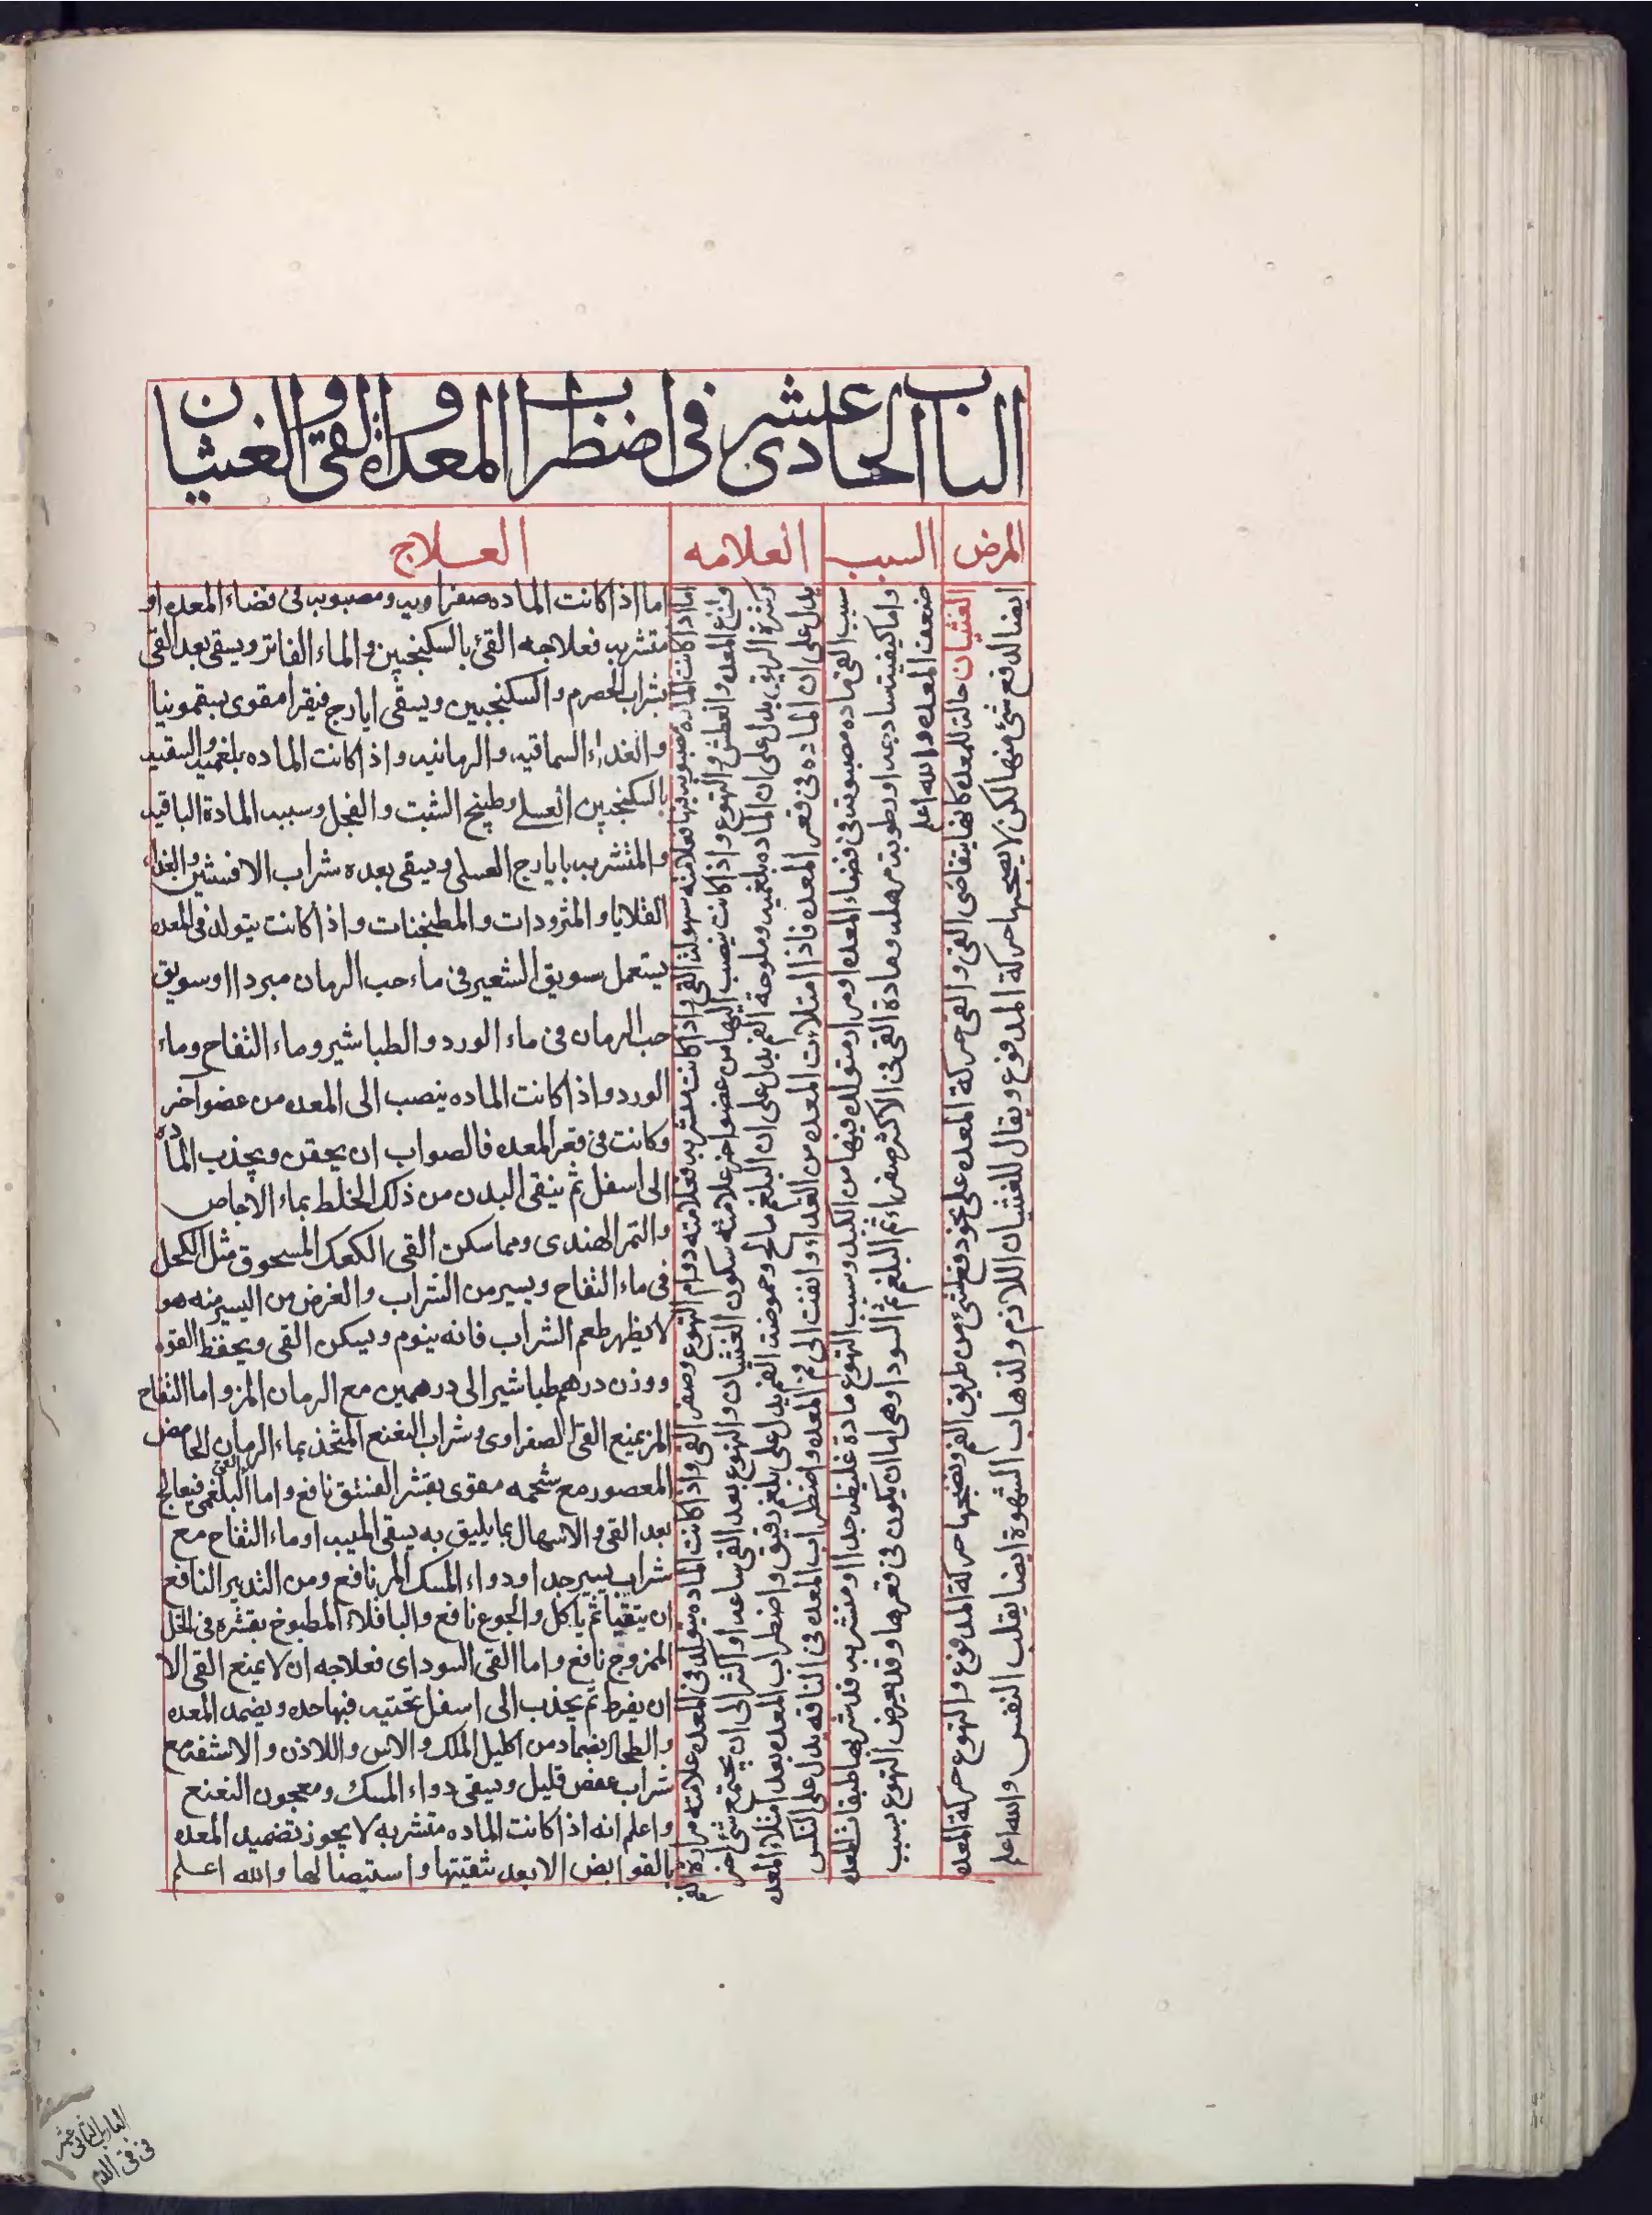 الباب الحادى عشر فى اضطراب المعدة و القى و الغثيان
المرض
السبب
العلامه
العلاج
الغثيان حالة للمعده كانها يتقاضى القى و القى حركة المعده على نحو دفع لشئ من طريق الفم و نضجها حركة المدفوع و التهوع حركة المعده
ايضا لدفع شئ منها لكن لا يصحبها حركة المدفوع ويقال للغثيان اللازم ولذهاب الشهوة ايضا يقلب النفس والله اعلم
سبب القى ماده مصبوبة فى فضاء المعده او مرار متولد فيها من الكبد وسبب التهوع مادة غليظه جدا او متشربه قد شربها طبقات المعده
واما كيفيته سادجه او رطوبة مرهله ومادة القى فى الاكثر صفراء ثم البلغم ثم السودا وهى اما ان يكون فى قعرها وقد يعرض التهوع بسبب
ضعف المعده والله اعلم
اما اذا كانت الماده مصبوبه فيها فعلامته سهولة القى واذا كانت متشربه فعلامته دوام التهوع وصفر القى واذا كانت الماده يتولد فى المعده علامته مرارة
ولذع المعده والعطش والتهوع واذا كانت ينصب اليها من عضو اخر علامته سكون الغثيان والتهوع بعد القى ساعه او اكثر الى ان يجتمع شئ اخر
وكثرة الريق يدل على ان الماده بلغميه وملوحة الفم يدل على ان البلغم مالح وحموضة الفم يدل على بلغم رقيق واضطراب المعده بعد امتلاء المعده
يدل على ان الماده فى قعر المعده فاذا امتلات المعده من الغذاء وانفت الى فم المعده واضطراب المعده فى الناقه يدل على النكس
اما اذا كانت الماده صفراويه ومصبوبه فى فضاء المعده او
متشربه فعلاجه القئ بالسكنجبين و الماء الفاتر ويسقى بعد القى
بشراب الحصرم و السكنجبين ويسقى ايارج فيقرا مقوى بسقمونيا
و الغداء السماقيه و الرمانيه و اذا كانت الماده بلغميه و السقيه
بالسكنجبين العسلى وطبيخ الشبت و الفجل وسببه المادة الباقيه
و المتشربه بايارج العسلى ويسقى بعده شراب الافسنتين و الغذاء
القلايا و المثرودات و المطنجنات و اذا كانت يتولد فى المعده
يستعمل سويق الشعير فى ماء حب الرمان مبردا او سويق
حب الرمان فى ماء الورد و الطباشير وماء التفاح وماء
الورد و اذا كانت الماده ينصب الى المعده من عضو اخر
وكانت فى قعر المعده فالصواب ان يحقن ويجذب المادة
الى اسفل ثم ينقى البدن من ذلك الخلط بماء الاجاص
و التمر الهندى ومما سكن القى الكعك المسحوق مثل الكحل
فى ماء التفاح ويسير من الشراب و الغرض من اليسير منه هو
لا يظهر طعم الشراب فانه ينوم ويسكن القى ويحفظ القوه
ووزن درهم طباشير الى درهمين مع الرمان المز و اما التفاح
المز يمنع القى الصفراوى وشراب النعنع المتخذ بماء الرمان الحامض
المعصور مع شحمه مقوى بقشر الفستق نافع و اما القى البلغمى فيعالج
بعد القى و الاسهال بما يليق به يسقى الميبه او ماء التفاح مع
شراب يسير جدا و دواء المسك المر نافع ومن التدبير النافع
ان يتقيا ثم ياكل و الجوع نافع و الباقلاء المطبوخ بقشره فى الخل
الممزوج نافع و اما القى السوداى فعلاجه ان لا يمنع القى الا
ان يفرط ثم يجذب الى اسفل بحقنه فيها حده ويضمد المعده
و الطحال بضماد من اكليل الملك و الاس و اللاذن و الاشنه مع
شراب عفص قليل ويسقى دواء المسك ومعجون النعنع
و اعلم انه اذا كانت الماده متشربه لا يجوز تضميد المعده
بالقوابض الا بعد تنقيتها و استيصالها و الله اعلم
الباب الثانى عشر
فى قى الدم